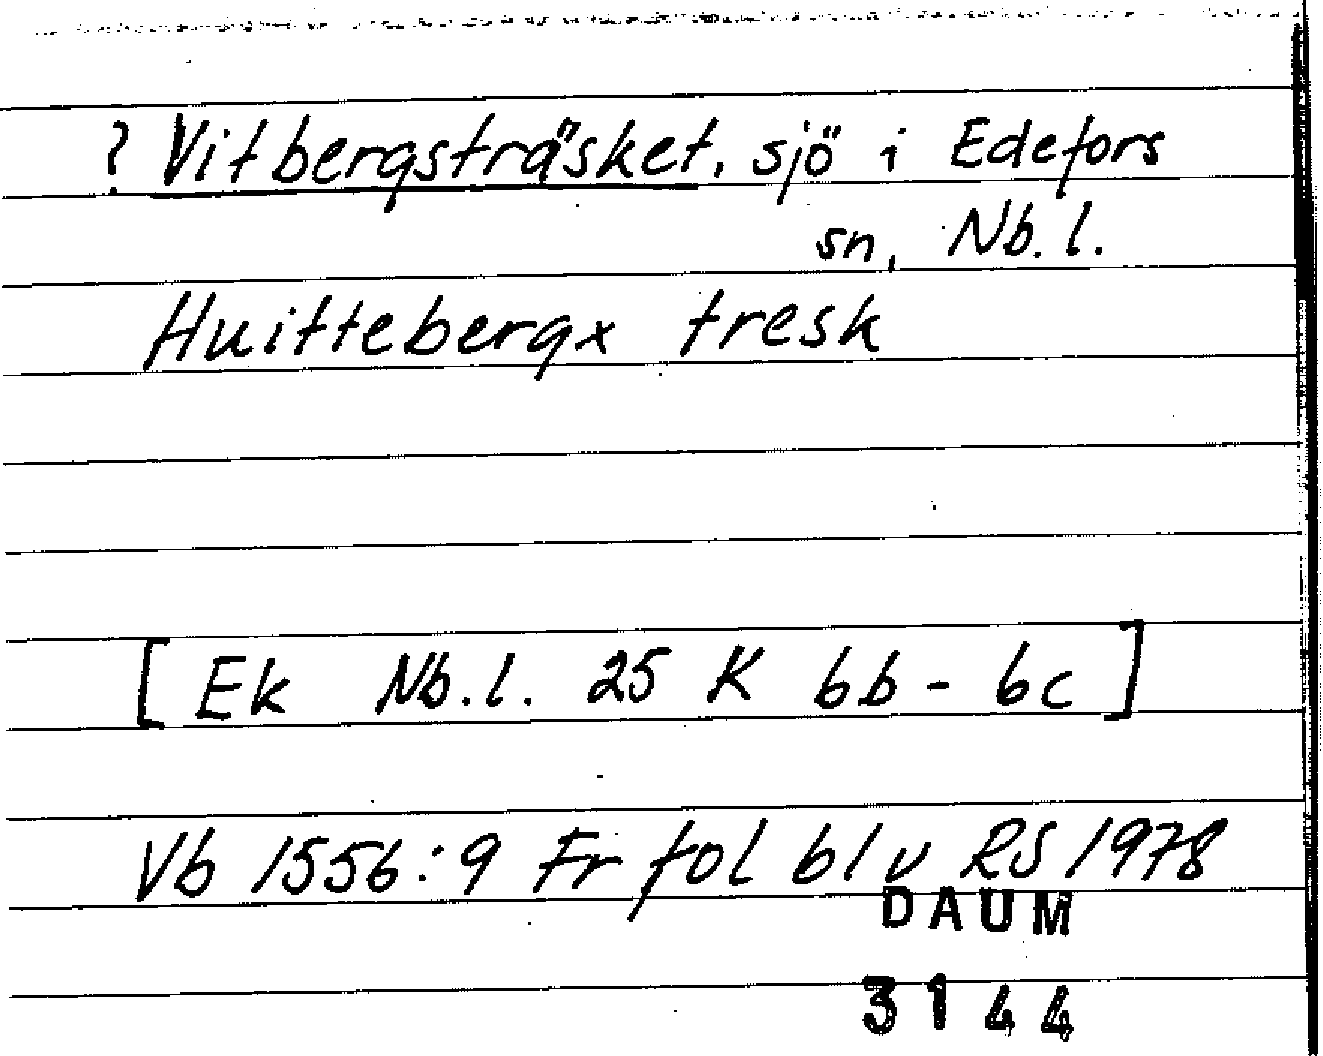 ? Vitbergsträsket, sjö i Edefors
sn, Nb. l.
Huittebergx tresk
[ Ek Nb. l. 25 K 6b - 6c ]
Vb 1556:9 Fr fol 61 v RS 1978
DAUM
3144